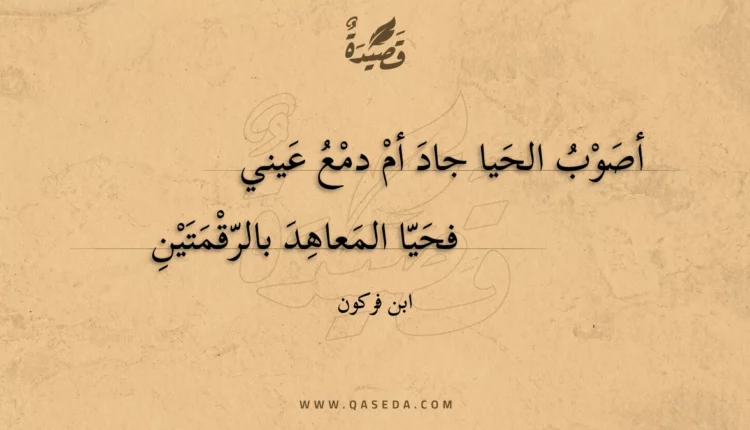 قَصِيْدَةٌ
أصَوْبُ الحَيا جادَ أمْ دمْعُ عَيني
فحَيّا المَعاهِدَ بالرّقْمَتَيْنِ
ابن فركون
WWW.QASEDA.COM